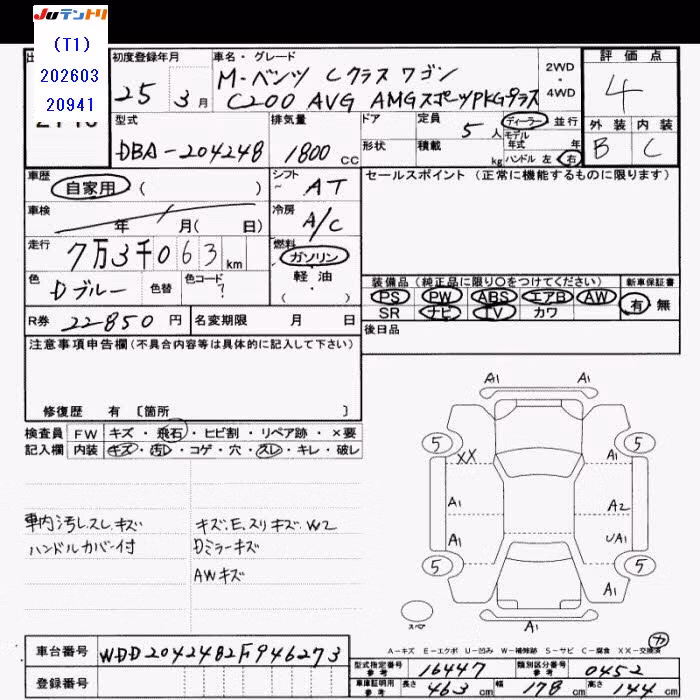 JUテントリ
(T1)
202603
20941
初度登録年月
25年 3月
車名・グレード
M-ベンツ Cクラス ワゴン
C200 AVG AMGスポーツPKGプラス
2WD
・
4WD
評価点
4
外装 内装
B C
型式
DBA-204248
排気量
1800 cc
ドア
定員 5人
形状
積載 kg
ディーラー 並行
モデル年式 年
ハンドル 左 右
車歴
自家用 ( )
シフト
~ AT
車検
年 月( 日)
冷房
A/C
走行
7万3千063 km
燃料
ガソリン
軽油
( ・ )
色
Dブルー
色替
色コード
?
R券 22850 円
名変期限 月 日
セールスポイント (正常に機能するものに限ります)
装備品 (純正品に限り○をつけてください)
新車保証書
PS PW ABS エアB AW
有 無
SR ナビ TV カワ
後日品
注意事項申告欄(不具合内容等は具体的に記入して下さい)
修復歴 有 〔箇所 〕
検査員 FW キズ・飛石・ヒビ割・リペア跡・×要
記入欄 内装 キズ・汚レ・コゲ・穴・スレ・キレ・破レ
車内汚レ.スレ.キズ
ハンドルカバー付
キズ.E.スリキズ.W2
Dミラーキズ
AWキズ
A1 A1
5 5
XX A1
A1 A2
A1 UA1
5 5
A1
スペア
A-キズ E-エクボ U-凹み W-補修跡 S-サビ C-腐食 XX-交換済
車台番号 WDD2042482F946273
登録番号
型式指定番号 参考 16447
類別区分番号 参考 0452
車庫証明用 参考 長さ 463 cm 幅 178 cm 高さ 144 cm